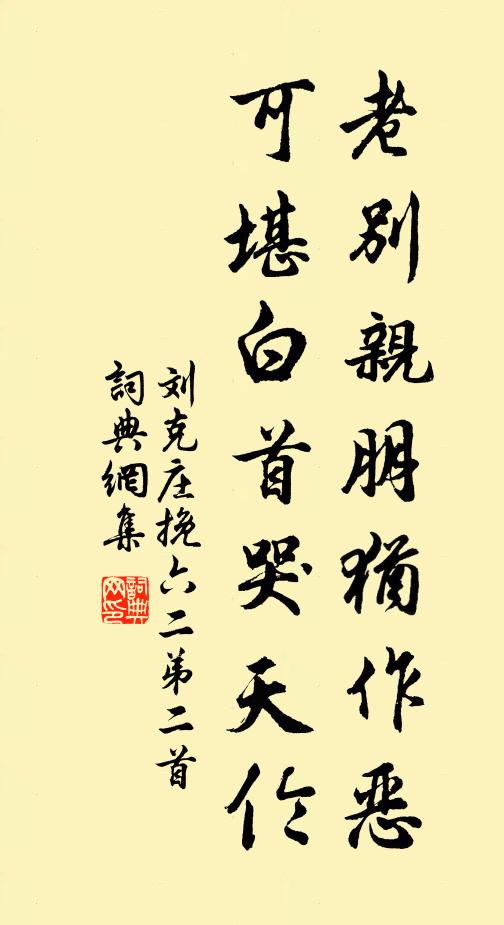 老别親朋猶作恶
可堪白首哭天伦
刘克庄挽六二弟二首
詞典網集
詞典网印